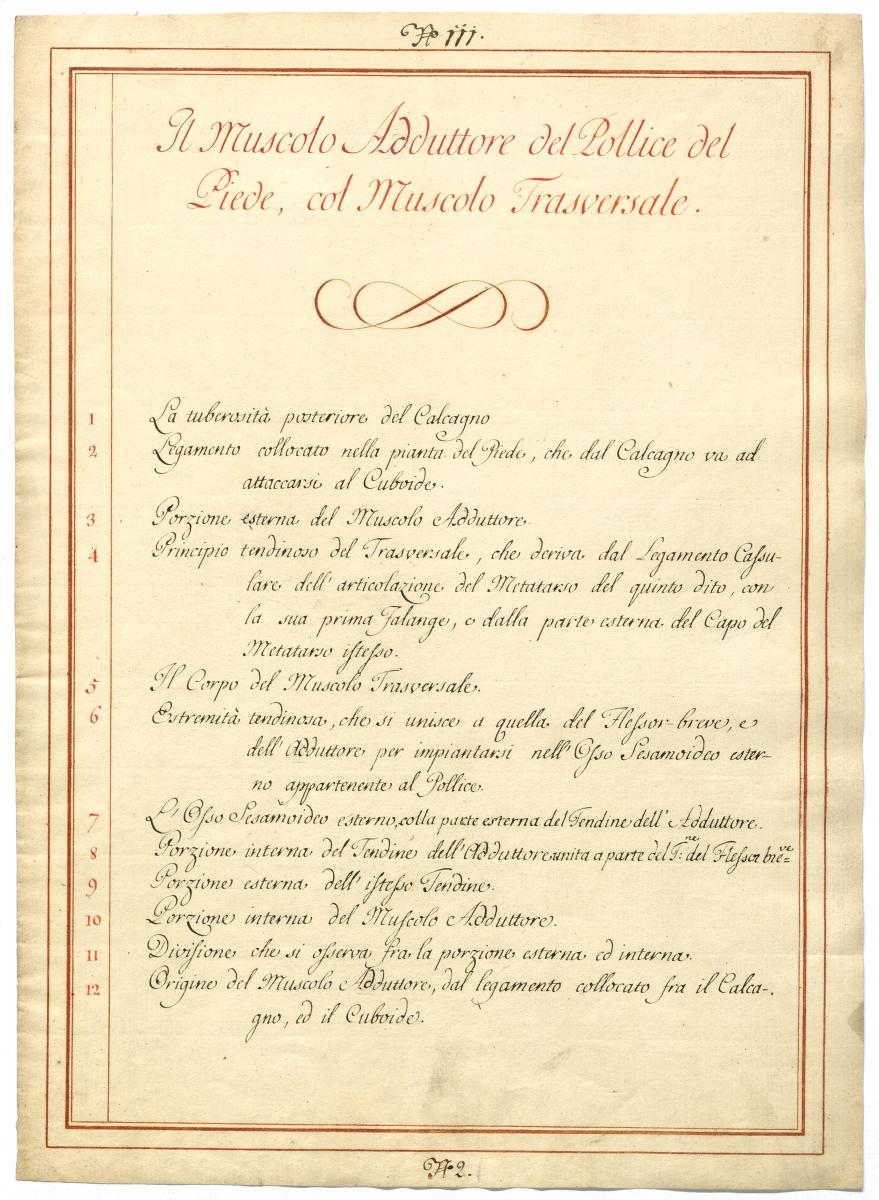 Nº III.
Il Muscolo Adduttore del Pollice del
Piede, col Muscolo Trasversale.
1 La tuberosità posteriore del Calcagno
2 Legamento collocato nella pianta del Piede, che dal Calcagno va ad
attaccarsi al Cuboide.
3 Porzione esterna del Muscolo Adduttore.
4 Principio tendinoso del Trasversale, che deriva dal Legamento Cassu-
lare dell'articolazione del Metatarso del quinto dito, con
la sua prima Falange, e dalla parte esterna del Capo del
Metatarso istesso.
5 Il Corpo del Muscolo Trasversale.
6 Estremità tendinosa, che si unisce a quella del Flessor-breve, e
dell'Adduttore per impiantarsi nell'Osso Sesamoideo ester-
no appartenente al Pollice.
7 L'Osso Sesamoideo esterno, colla parte esterna del Tendine dell'Adduttore.
8 Porzione interna del Tendine dell'Adduttore unita a parte del T:ne del Flessor bre=ve
9 Porzione esterna dell'istesso Tendine.
10 Porzione interna del Muscolo Adduttore.
11 Divisione che si osserva fra la porzione esterna ed interna.
12 Origine del Muscolo Adduttore, dal legamento collocato fra il Calca-
gno, ed il Cuboide.
Nº 2.